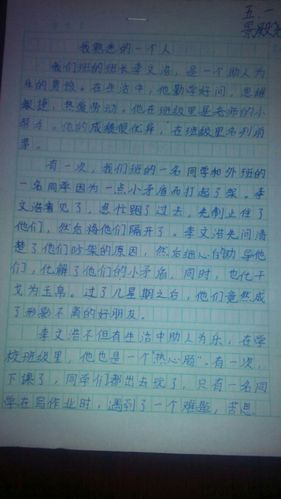 五一
我熟悉的一个人
我们班的班长李文浩，是一个助人为
乐的男孩。在生活中，他勤学好问，思维
敏捷，热爱劳动。他在班级里是老师的小
帮手。他的成绩很优异，在班级里名列前
茅。
有一次，我们班的一名同学和外班的
一名同学因为一点小矛盾而打起了架。李
文浩看见了，急忙跑了过去，先制止住了
他们，然后将他们隔开了。李文浩先问清
楚了他们吵架的原因，然后细心的助导他
们，化解了他们的小矛盾，同时，也化干
戈为玉帛。过了几星期之后，他们竟然成
了形影不离的好朋友。
李文浩不但有生活中助人为乐，在学
校班级里，他也是一个“热心肠”。有一次，
下课了，同学们都出去玩了，只有一名同
学在写作业时，遇到了一个难题，苦思